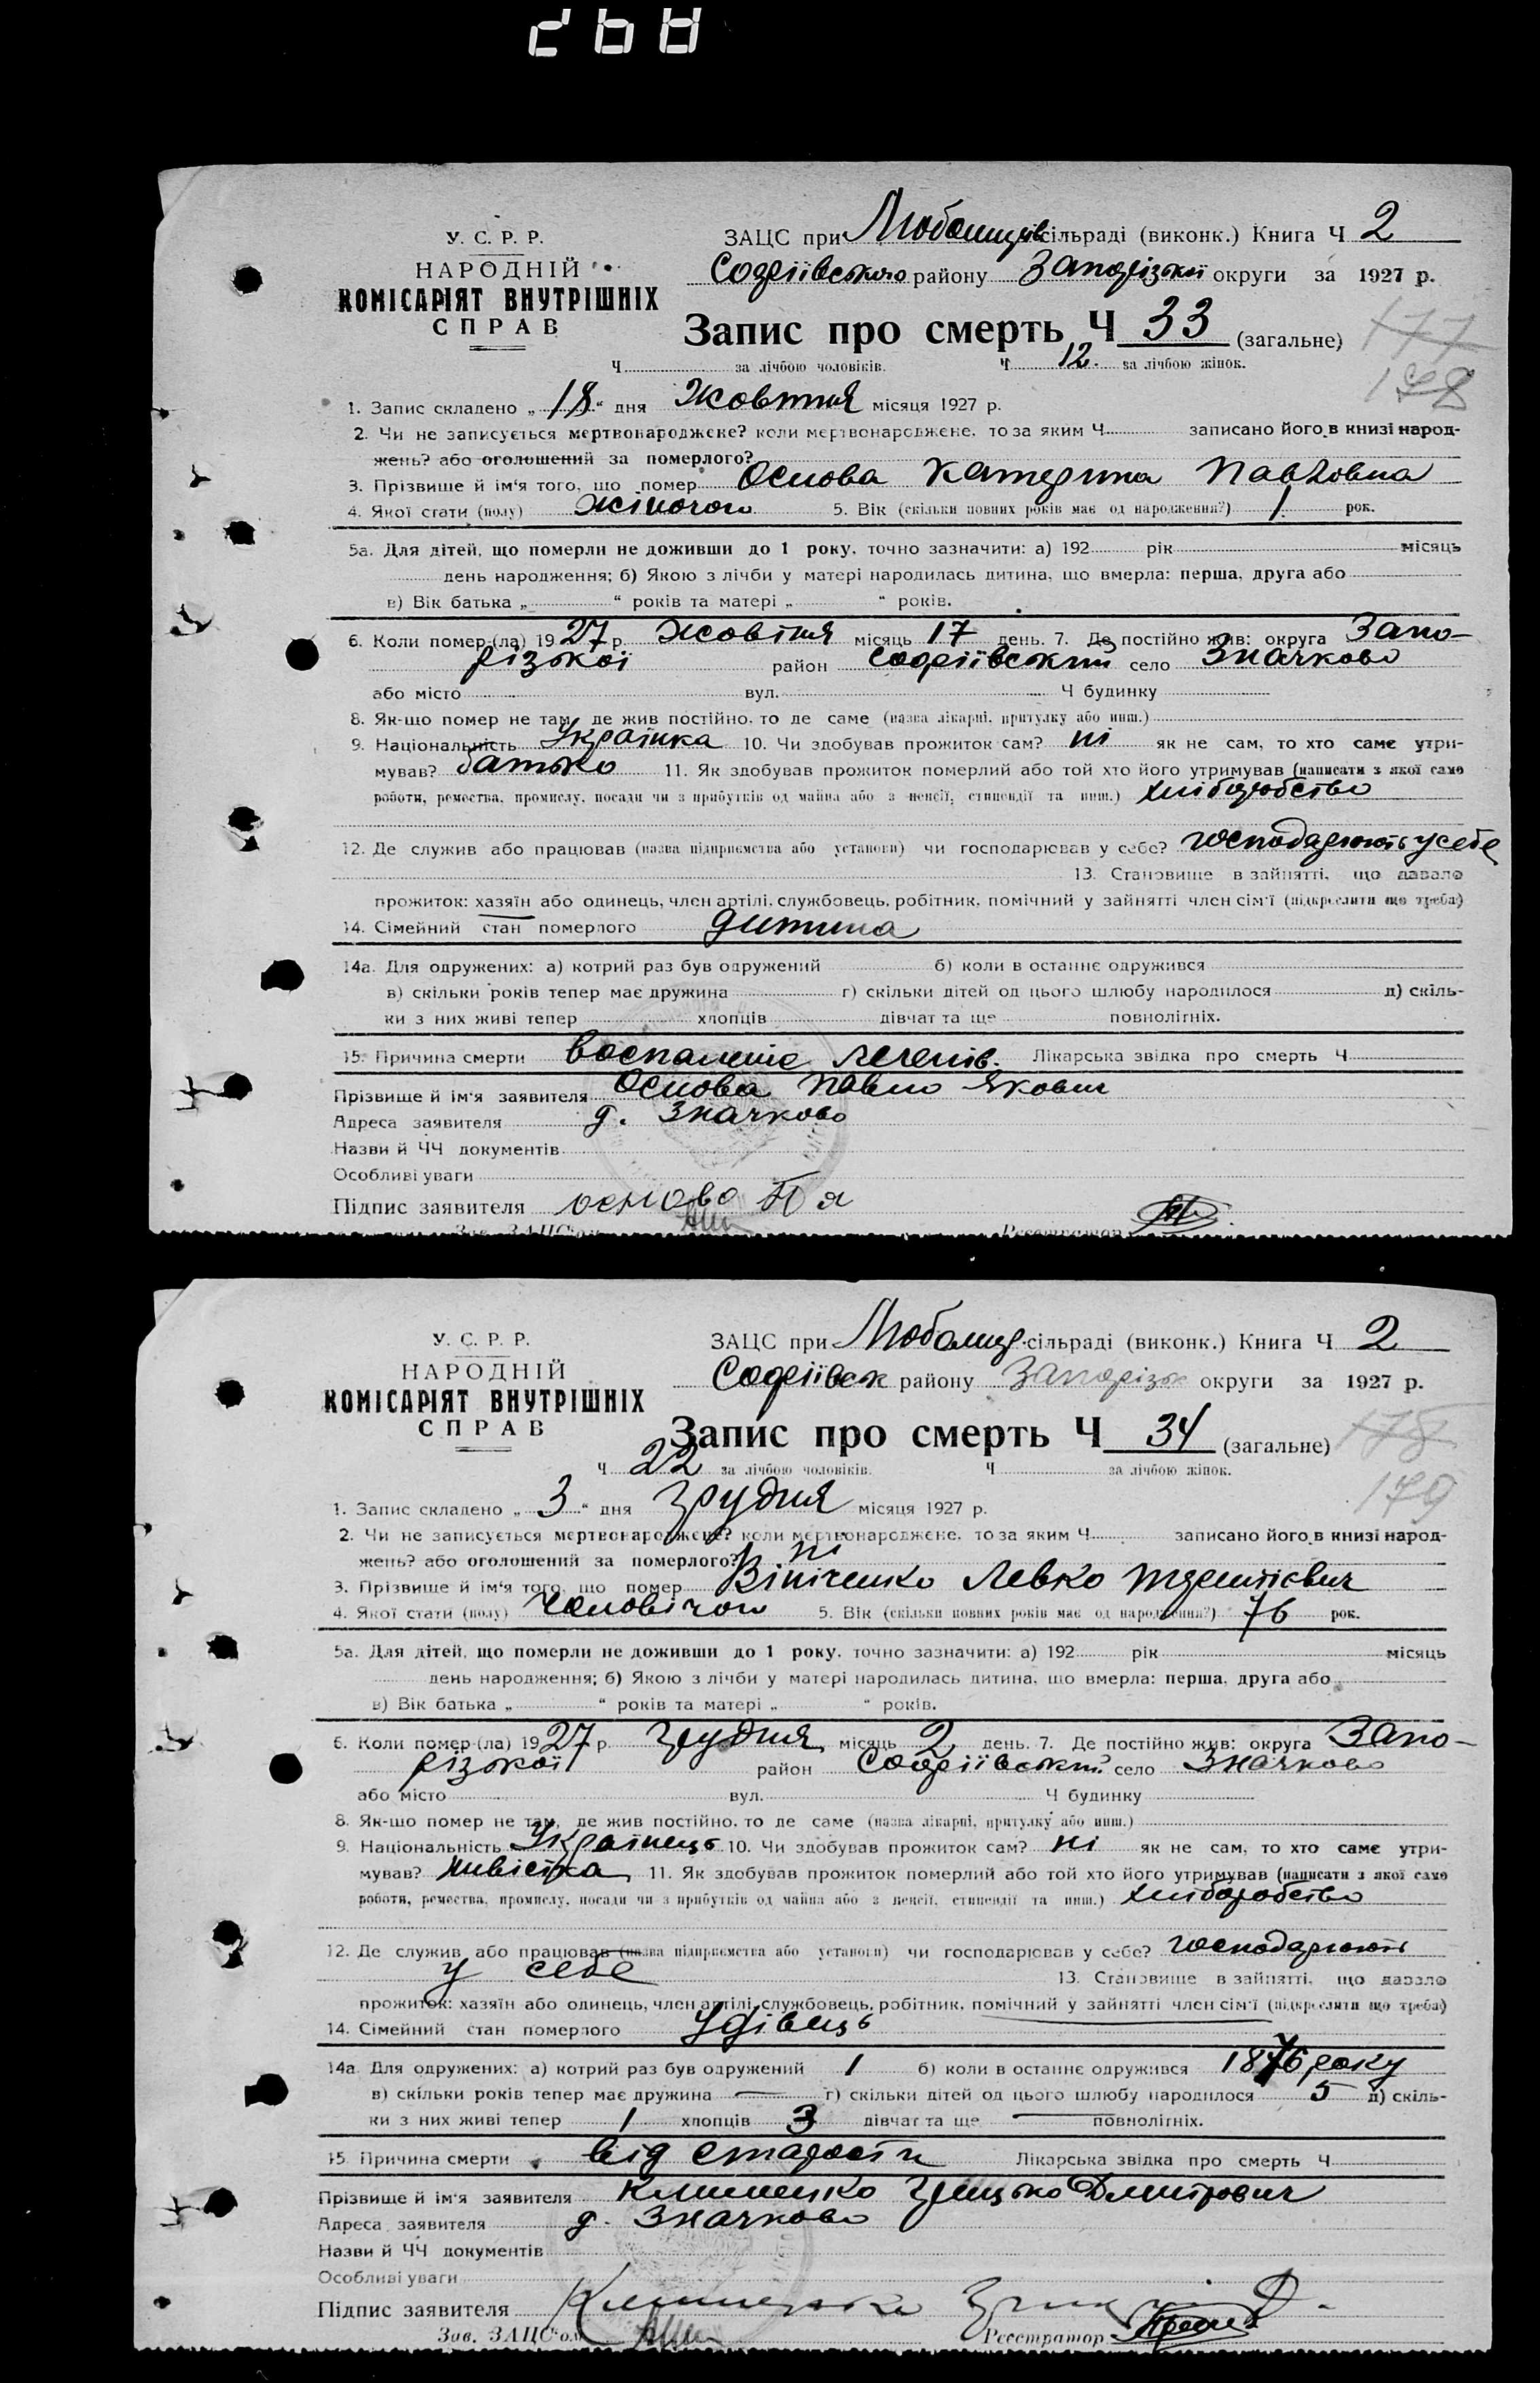 268
У. С. Р. Р.
НАРОДНІЙ
КОМІСАРІЯТ ВНУТРІШНІХ
СПРАВ
ЗАЦС при Любомирів сільраді (виконк.) Книга Ч 2
Софіївського району Запорізької округи за 1927 р.
Запис про смерть Ч 33 (загальне)
177
Ч за лічбою чоловіків. Ч 12. за лічбою жінок.
178
1. Запис складено „ 18 “ дня Жовтня місяця 1927 р.
2. Чи не записується мертвонароджене? коли мертвонароджене, то за яким Ч записано його в книзі народ-
жень? або оголошений за померлого?
3. Прізвище й ім'я того, що помер Основа Катерина Павловна
4. Якої стати (полу) жіночого 5. Вік (скільки повних років має од народження?) 1 рок.
5а. Для дітей, що померли не доживши до 1 року, точно зазначити: а) 192 рік місяць
день народження; б) Якою з лічби у матері народилась дитина, що вмерла: перша, друга або
в) Вік батька „ “ років та матері „ “ років.
6. Коли помер (ла) 1927 р. Жовтня місяць 17 день. 7. Де постійно жив: округа Запо-
різької район Софіївський село Значково
або місто вул. Ч будинку
8. Як-що помер не там, де жив постійно, то де саме (назва лікарні, притулку або инш.)
9. Національність Українка 10. Чи здобував прожиток сам? ні як не сам, то хто саме утри-
мував? батько 11. Як здобував прожиток померлий або той хто його утримував (написати з якої само
роботи, ремества, промислу, посади чи з прибутків од майна або з пенсії, стипендії та инш.) хліборобство
12. Де служив або працював (назва підприємства або установи) чи господарював у себе? господарюють у себе
13. Становище в зайнятті, що давало
прожиток: хазяїн або одинець, член артілі, службовець, робітник, помічний у зайнятті член сім'ї (підкреслити що треба)
14. Сімейний стан померлого дитина
14а. Для одружених: а) котрий раз був одружений б) коли в останнє одружився
в) скільки років тепер має дружина г) скільки дітей од цього шлюбу народилося д) скіль-
ки з них живі тепер хлопців дівчат та ще повнолітніх.
15. Причина смерти воспаление легенів. Лікарська звідка про смерть Ч
Прізвище й ім'я заявителя Основа Павло Якович
Адреса заявителя д. Значково
Назви й ЧЧ документів
Особливі уваги
Підпис заявителя основа П я
Зав. ЗАЦС'ом Реєстратор
У. С. Р. Р.
НАРОДНІЙ
КОМІСАРІЯТ ВНУТРІШНІХ
СПРАВ
ЗАЦС при Любомир. сільраді (виконк.) Книга Ч 2
Софіївськ району Запорізьк округи за 1927 р.
Запис про смерть Ч 34 (загальне)
178
Ч 22 за лічбою чоловіків. Ч за лічбою жінок.
179
1. Запис складено „ 3 “ дня Грудня місяця 1927 р.
2. Чи не записується мертвонароджене? коли мертвонароджене, то за яким Ч записано його в книзі народ-
жень? або оголошений за померлого? ні
3. Прізвище й ім'я того, що помер Вініченко Левко Терентієвич
4. Якої стати (полу) Чоловічого 5. Вік (скільки повних років має од народження?) 76 рок.
5а. Для дітей, що померли не доживши до 1 року, точно зазначити: а) 192 рік місяць
день народження; б) Якою з лічби у матері народилась дитина, що вмерла: перша, друга або
в) Вік батька „ “ років та матері „ “ років.
6. Коли помер (ла) 1927 р. Грудня місяць 2 день. 7. Де постійно жив: округа Запо-
різької район Софіївський село Значково
або місто вул. Ч будинку
8. Як-що помер не там, де жив постійно, то де саме (назва лікарні, притулку або инш.)
9. Національність Українець 10. Чи здобував прожиток сам? ні як не сам, то хто саме утри-
мував? нивістка 11. Як здобував прожиток померлий або той хто його утримував (написати з якої само
роботи, ремества, промислу, посади чи з прибутків од майна або з пенсії, стипендії та инш.) хліборобство
12. Де служив або працював (назва підприємства або установи) чи господарював у себе? господарюють
у себе 13. Становище в зайнятті, що давало
прожиток: хазяїн або одинець, член артілі, службовець, робітник, помічний у зайнятті член сім'ї (підкреслити що треба)
14. Сімейний стан померлого Удівець
14а. Для одружених: а) котрий раз був одружений 1 б) коли в останнє одружився 1876 року
в) скільки років тепер має дружина — г) скільки дітей од цього шлюбу народилося 5 д) скіль-
ки з них живі тепер 1 хлопців 3 дівчат та ще — повнолітніх.
15. Причина смерти від старости Лікарська звідка про смерть Ч
Прізвище й ім'я заявителя Клименко Грицько Дмитрович
Адреса заявителя д. Значково
Назви й ЧЧ документів
Особливі уваги
Підпис заявителя Клименко Гриц Д.
Зав. ЗАЦС'ом Реєстратор